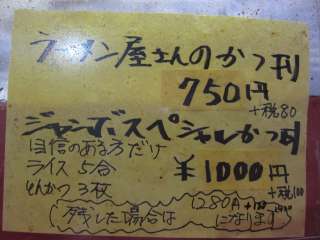 ラーメン屋さんのかつ丼
750円
+税80
ジャンボスペシャルかつ丼
自信のある方だけ
ライス 5合 ¥1000円
とんかつ 3枚 +税100
(残した場合は 1280円
になります